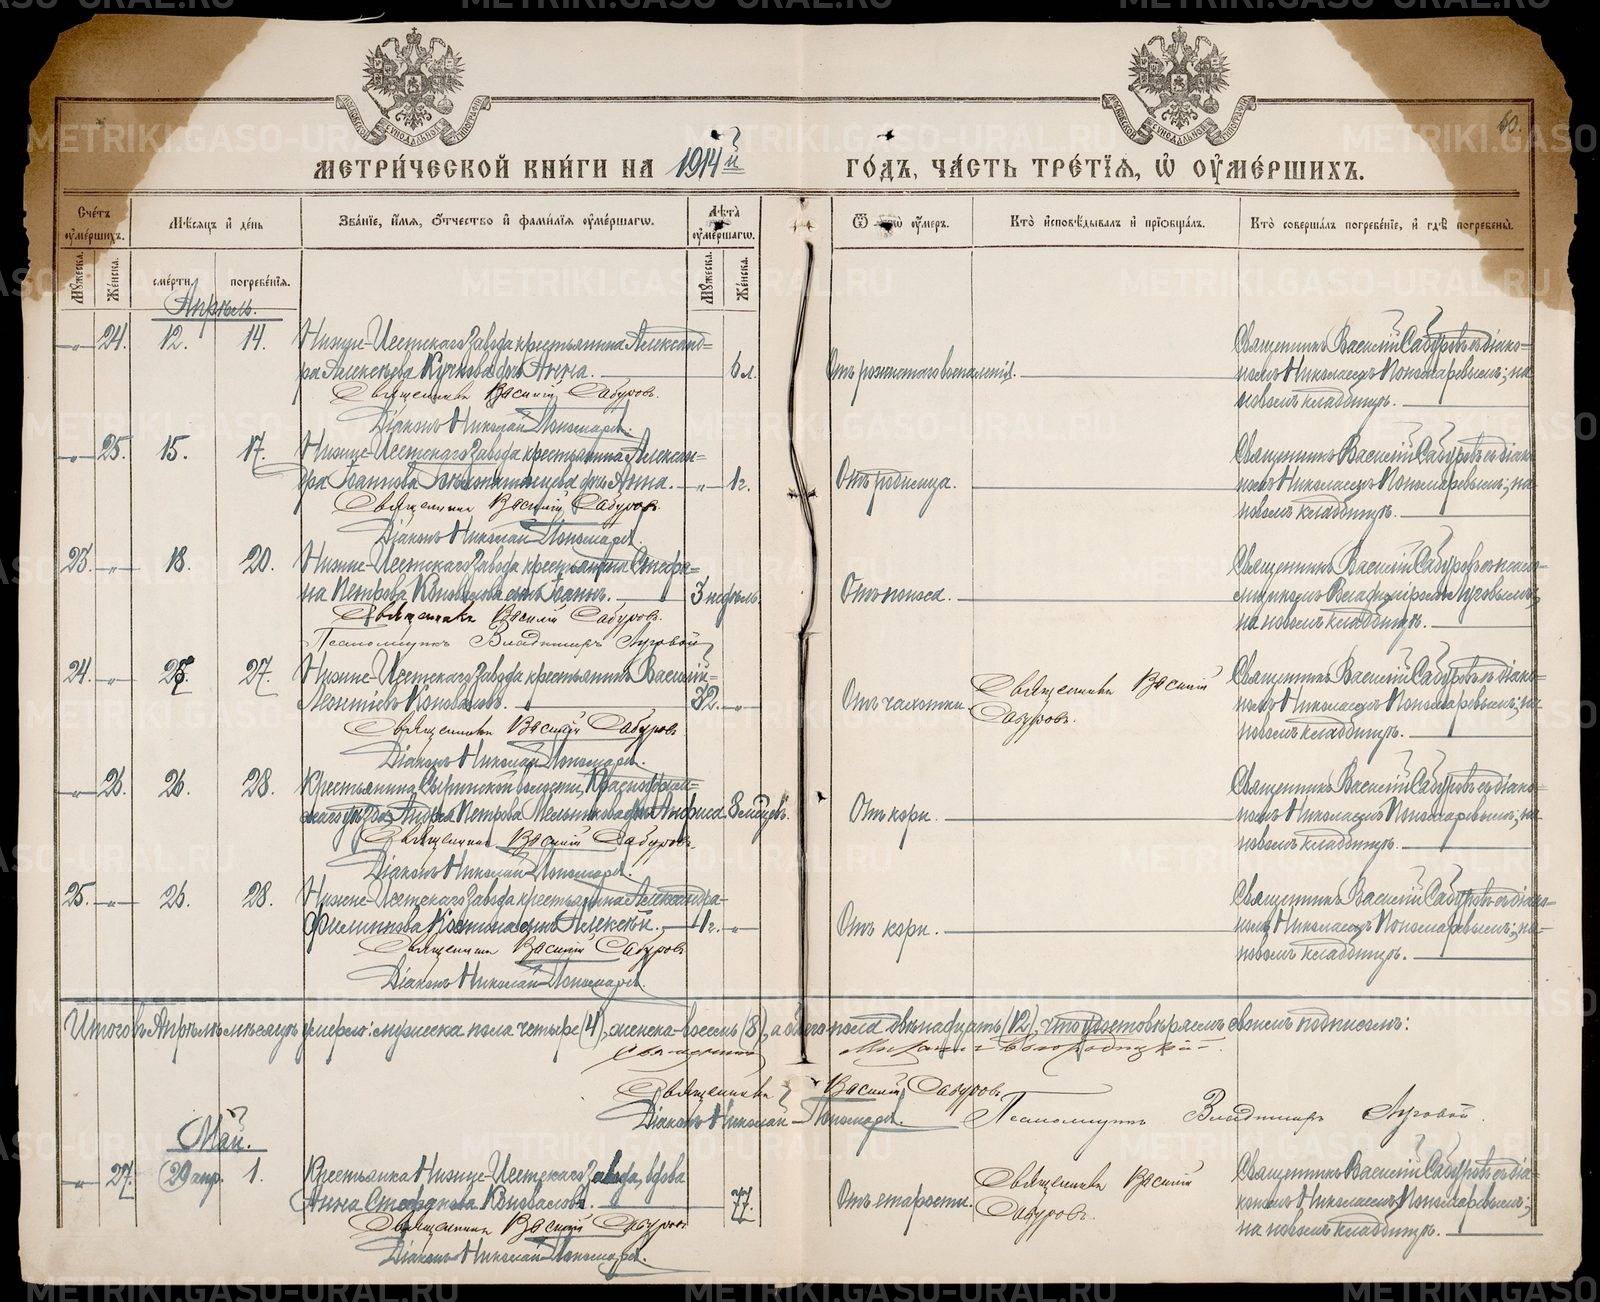 60.
МЕТРИ́ЧЕСКОЙ КНИ́ГИ НА 1914й ГО́ДЪ, ЧА́СТЬ ТРЕ́ТІѦ, Ѡ ОУМЕ́РШИХЪ.
Сче́тъ оумершихъ.
Му́жеска.
Же́нска.
Мѣ́сяцъ и день
сме́рти.
погребе́нія.
Зва́ніе, и́мя, о́тчество и фами́лія оуме́ршагѡ.
Лѣта̀ оуме́ршагѡ.
Му́жеска.
Же́нска.
оу́меръ.
Кто̀ исповѣ́дывалъ и пріѡбща́лъ.
Кто̀ соверша́лъ погребе́ніе, и гдѣ̀ погребены̀.
Апрѣль.
24. 12. 14. Нижне-Исетскаго завода крестьянина Александ=
ра Алексѣева Кучкова дочь Анна. 6 л.
Священникъ Василій Сабуровъ.
Діаконъ Николай Пономаревъ.
Священникъ Василій Сабуровъ съ діако=
номъ Николаемъ Пономаревымъ; на
новомъ кладбищѣ.
25. 15. 17. Нижне-Исетскаго завода крестьянина Алексан=
дра Іоаннова дочь Анна. 1 г.
Отъ родимца.
Священникъ Василій Сабуровъ.
Діаконъ Николай Пономаревъ.
Священникъ Василій Сабуровъ съ діако=
номъ Николаемъ Пономаревымъ; на
новомъ кладбищѣ.
23. 18. 20. Нижне-Исетскаго завода крестьянина Стефа=
на Петрова Коновалова сынъ Іоаннъ. 3 недѣль.
Отъ поноса.
Священникъ Василій Сабуровъ.
Псаломщикъ Владиміръ Луговой
Священникъ Василій Сабуровъ съ псало=
мщикомъ Владиміромъ Луговымъ;
на новомъ кладбищѣ.
24. 25. 27. Нижне-Исетскаго завода крестьянинъ Василій
Леонтіевъ Коноваловъ. 32.
Отъ чахотки.
Священникъ Василій
Сабуровъ.
Священникъ Василій Сабуровъ
Діаконъ Николай Пономаревъ.
Священникъ Василій Сабуровъ съ діако=
номъ Николаемъ Пономаревымъ; на
новомъ кладбищѣ.
26. 26. 28. Крестьянина волости, Красноуфим=
скаго уѣзда, Андрея Петрова Мельникова дочь Анфиса. 8 мѣсяцевъ.
Отъ кори.
Священникъ Василій Сабуровъ
Діаконъ Николай Пономаревъ.
Священникъ Василій Сабуровъ съ діако=
номъ Николаемъ Пономаревымъ; на
новомъ кладбищѣ.
25. 26. 28. Нижне-Исетскаго завода крестьянина Александра
Филиппова Костина сынъ Алексѣй. 1 г.
Отъ кори.
Священникъ Василій Сабуровъ
Діаконъ Николай Пономаревъ.
Священникъ Василій Сабуровъ съ діако=
номъ Николаемъ Пономаревымъ; на
новомъ кладбищѣ.
Итого въ Апрѣлѣ мѣсяцѣ умерло: мужеска пола четыре (4), женска-восемь (8), а обоего пола двѣнадцать (12), что и удостовѣряемъ своимъ подписомъ:
Священникъ
Священникъ Василій Сабуровъ
Діаконъ Николай Пономаревъ. Псаломщикъ Владиміръ Луговой.
Май.
27. 29 апр. 1. Крестьянка Нижне-Исетскаго завода, вдова
Анна Коновалова. 77.
Отъ старости.
Священникъ Василій
Сабуровъ.
Священникъ Василій Сабуровъ
Діаконъ Николай Пономаревъ.
Священникъ Василій Сабуровъ съ діа=
кономъ Николаемъ Пономаревымъ;
на новомъ кладбищѣ.
METRIKI.GASO-URAL.RU